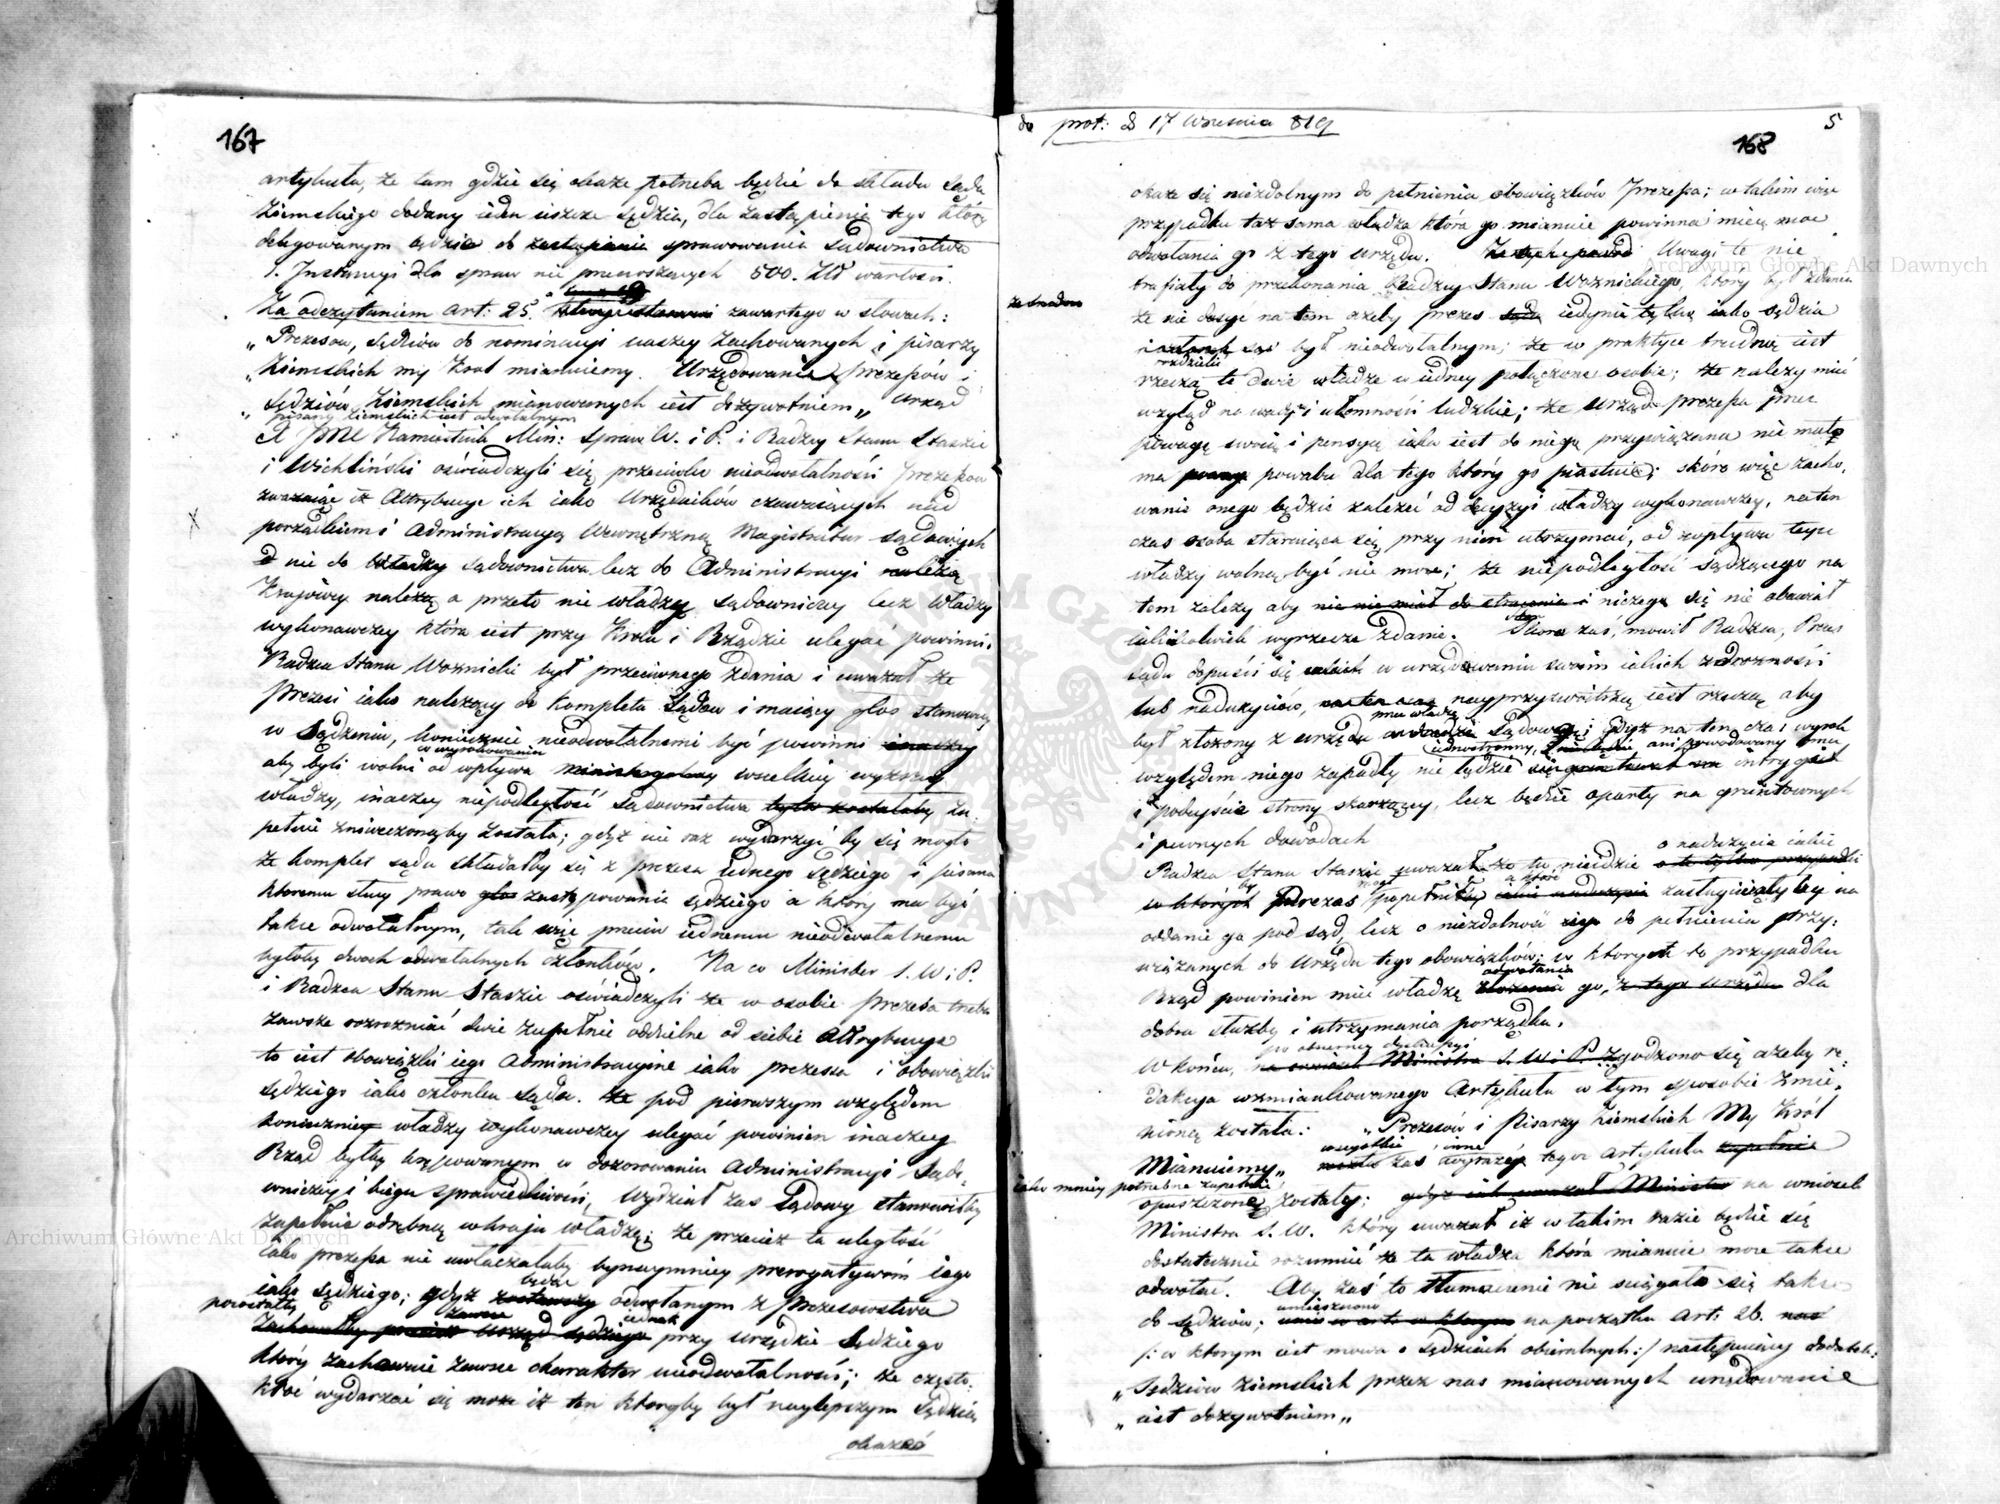 167
artykułu, że tam gdzie się okaże potrzeba będzie do składu Sądu
Ziemskiego dodany ieden ieszcze Sędzia, dla zastąpienia tego który
delegowanym będzie do zastąpienia sprawowania Sądownictwa
1. Instancyi dla spraw nie przenoszących 500. Złł wartości.
Za odczytaniem art: 25. zawartego w słowach:
„ Prezesów, Sędziów do nominacyi naszey zachowanych i pisarzy
„ Ziemskich my Król mianuiemy. Urzędowanie Prezesów i
„ Sędziów Ziemskich mianowanych iest dożywotniem„ Urząd
pisarzy Ziemskich iest odwołalnym
JPNC Namiestnik Min: Spraw W. i P. i Radzcy Stanu Staszic
i Wichliński oświadczyli się przeciwko nieodwołalności Prezesów
zważaiąc iż Attrybucye ich iako Urzędników czuwaiących nad
porządkiem i Administracyą Wewnętrzną Magistratur Sądowych
nie do Władzy Sądownictwa lecz do Administracyi należą
Kraiowey należą a przeto nie władzy Sądowniczey lecz Władzy
wykonawczey która iest przy Królu i Rządzie ulegać powinni.
Radzca Stanu Woznicki był przeciwnego zdania i uważał że
Prezesi iako należący do kompletu Sądów i maiący głos stanowczy
w Sądzeniu, koniecznie nieodwołalnemi być powinni inaczey
w wyrokowaniu
aby byli wolni od wpływu wszelkiey wyższey
władzy, inaczey niepodległość Sądownictwa była zostałaby zu-
pełnie zniweczonąby została; gdyż nie raz wydarzyć by się mogło
że komplet sądu składałby się z prezesa iednego sędziego i pisarza
któremu służy prawo głos zastępowania sędziego a który ma być
także odwołalnym, tak więc przeciw iednemu nieodwołalnemu
byłoby dwóch odwołalnych członków. Na co Minister S. W. i P.
i Radzca Stanu Staszic oświadczyli że w osobie Prezesa trzeba
zawsze rozrózniać dwie zupełnie oddzielne od siebie Attrybucye
to iest obowiązki iego Administracyine iako prezesa i obowiązki
sędziego iako członka sądu. Że pod pierwszym względem
koniecznie władzy wykonawczey ulegać powinien inaczey
Rząd byłby krępowanym w dozorowaniu Administracyi Sądo-
wniczey i biegu sprawiedliwości, Wydział zaś Sądowy stanowiłby
zupełnie odrębną w kraju władzę; że przecież ta uległość
iako prezesa nie uwłaczałaby bynaymniey prerogatywom iego
iako sędziego; gdyż zostawszy odwołanym z Prezesowstwa
będąc
pozostałby zawsze iednak
Zachowałby przecież urząd sędziego przy urzędzie Sędziego
który zachowuie zawsze charakter nieodwołalności; że często-
kroć wydarzać się może iż ten któryby był naylepszym Sędzią
okazać
do prot: d 17 Września 819
5
168
okaże się niezdolnym do pełnienia obowiązków Prezesa; w takim więc
przypadku taż sama władza która go mianuie powinna mieć moc
odwołania go z tego urzędu. Uwagi te nie
trafiały do przekonania Radzcy Stanu Woznickiego, który był zdania
że nie dosyć na tem ażeby prezes sądu iedynie tylko iako sędzia
był nieodwołalnym; że w praktyce trudną iest
rozdzielić
rzeczą te dwie władze w iedney połączone osobie; że należy mieć
wzgląd na wady i ułomności ludzkie; że urząd prezesa przez
powagę swoią i pensyą iaka iest do niego przywiązana nie mało
ma powabu dla tego który go piastuie; skóro więc zacho-
wanie onego będzie zależeć od decyzyi władzy wykonawczey, na ten
czas osoba staraiąca się przy nim utrzymać, od wpływu teyże
władzy wolną być nie może; że niepodległość sądzącego na
tem zależy aby nie nie miał do stracenia i niczego się nie obawiał
iakiekolwiek wyrzecze zdanie. Skoro zaś, mówił Radzca, Prezes
sądu dopuści się w urzędowaniu swoim iakich zdrożności
lub nadużyciów, na ten czas nayprzyzwoitszą iest rzeczą aby
przez władzę
był złożony z urzędu Sądową; gdyż na ten czas wyrok
iednostronny, ani powodowany
względem niego zapadły nie będzie intrygą
i podeyście strony skarżącey, lecz będzie oparty na gruntownych
i pewnych dowodach
o nadużycia iakie
Radzca Stanu Staszic uważał że tu nieidzie o te tylko przypadki
w których by Prezes popełnił iakie nadużycia zasługiwałyby na
oddanie go pod sąd, lecz o niezdolność iego do pełnienia przy-
wiązanych do urzędu tego obowiązków; w których to przypadku
odwołania
Rząd powinien mieć władzę złożenia go, z tego urzędu dla
dobra służby i utrzymania porządku.
po obszerney dyskussyi
W końcu, na wniosek Ministra S. W. i P. zgodzono się ażeby re-
dakcya wzmiankowanego Artykułu w tym sposobie zmie-
nioną została: „Prezesów i Pisarzy Ziemskich My Król
wszystkie inne
Mianuiemy„ reszta zaś wyrazy tegoż artykułu zupełnie
iako mniey potrzebne zupełnie
opuszczone zostały; gdyż iak uważał Minister na wniosek
Ministra S. W. który uważał iż w takim razie będzie się
dostatecznie rozumieć że ta władza która mianuie może także
odwołać. Aby zaś to tłumaczenie nie ściągało się także
umieszczono
do sędziów; na początku Art: 26.
/: w którym iest mowa o Sędziach obieralnych:/ następuiący dodatek:
„ Sędziów Ziemskich przez nas mianowanych urzędowanie
„ iest dożywotniem„
Archiwum Główne Akt Dawnych
Archiwum Główne Akt Dawnych